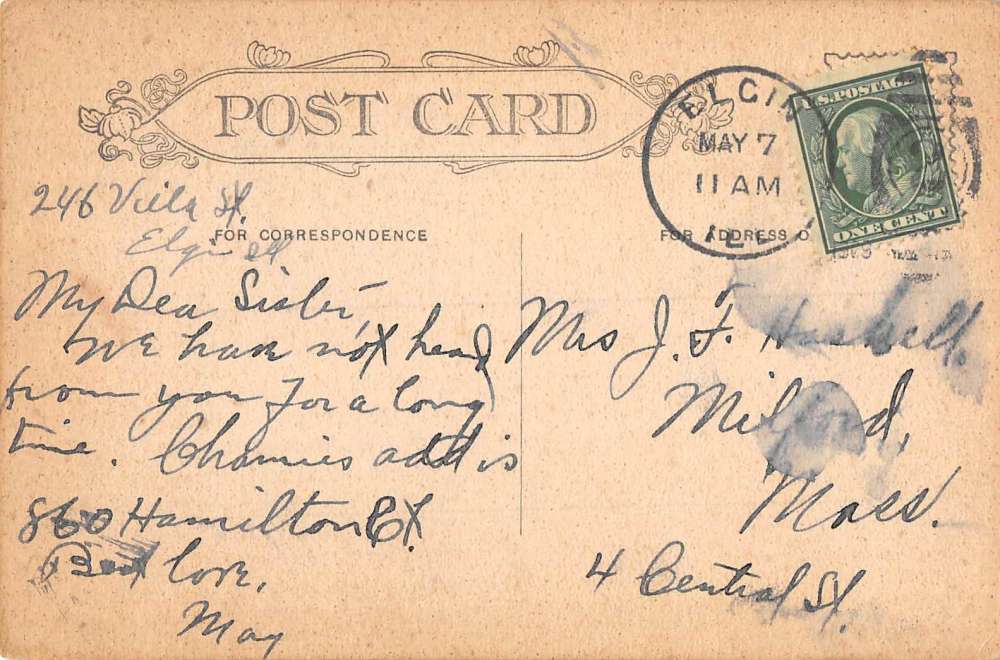 POST CARD
ELGIN
MAY 7
11 AM
ILL
U.S. POSTAGE
ONE CENT
246 Villa St.
Elgin Ill
FOR CORRESPONDENCE
FOR ADDRESS O
My Dear Sister,
We have not heard
from you for a long
time. Charnies add is
860 Hamilton Ct.
Best love,
May
Mrs J. F. Haskell.
Milford,
Mass.
4 Central St.